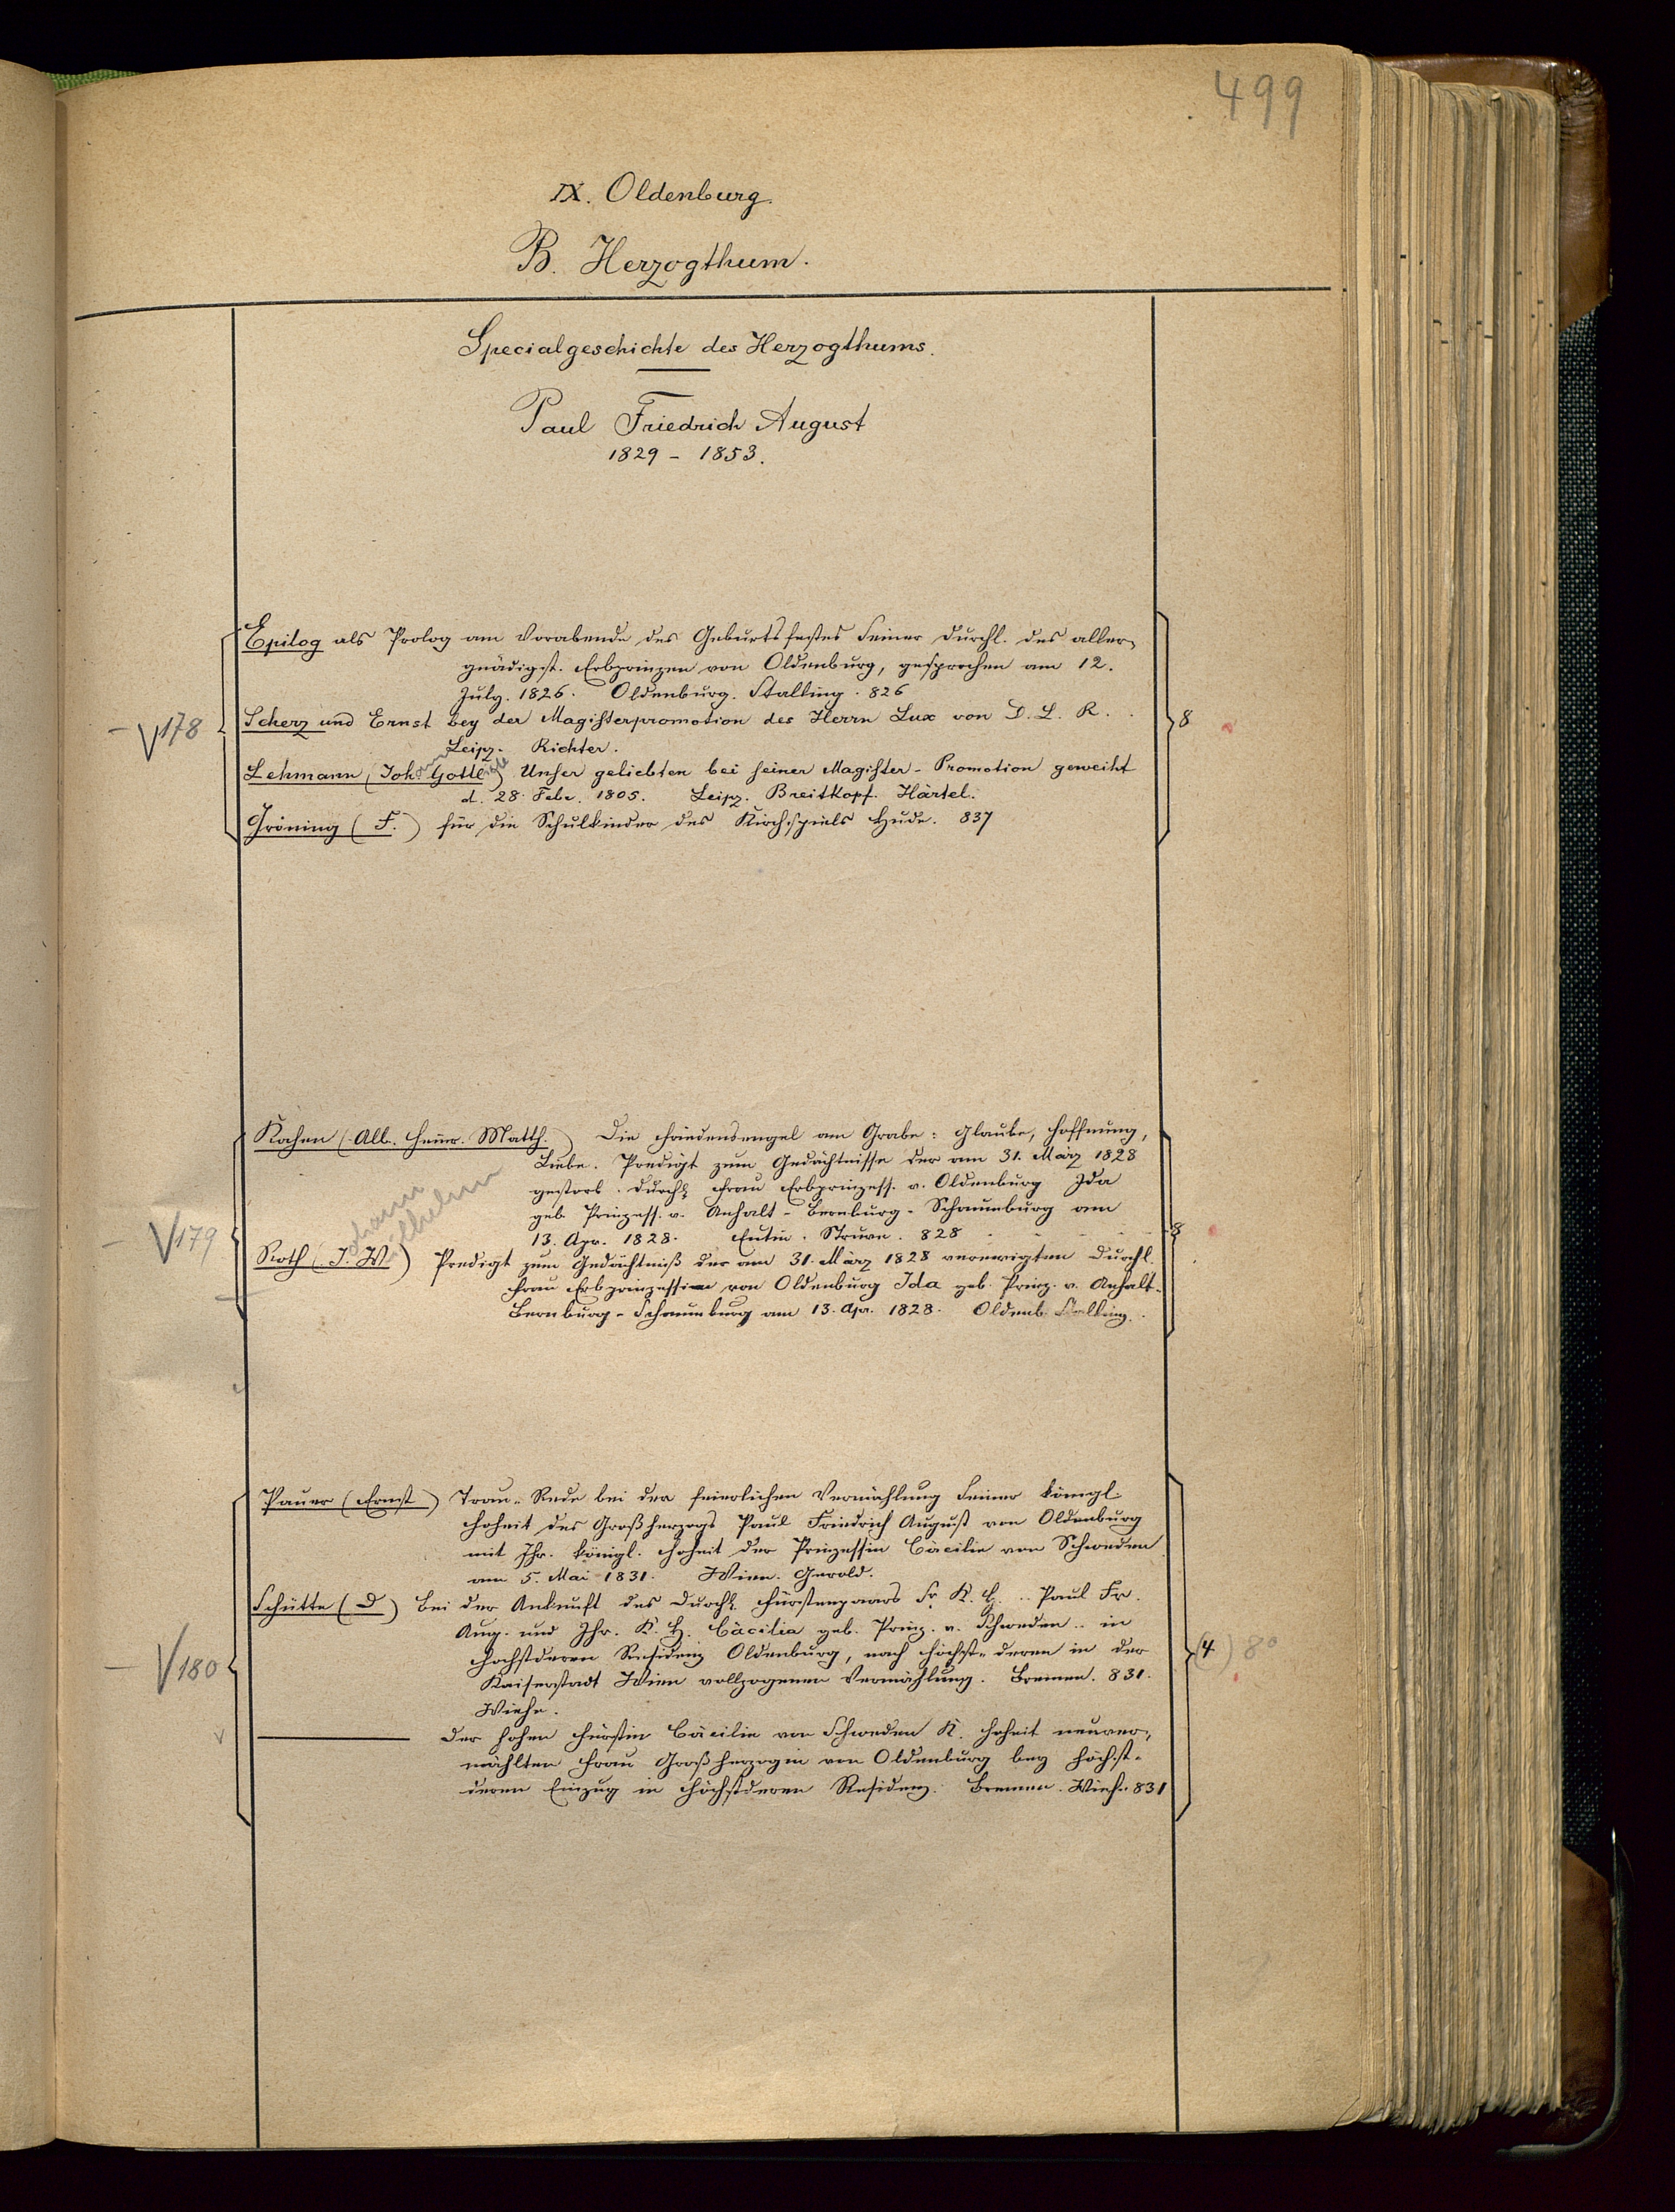 499
IX. Oldenburg.
B. Herzogthum.
Specialgeschichte des Herzogthums.
Paul Friedrich August
1829 - 1853.
Epilog als Prolog am Vorabende des Geburtsfestes Seiner Durchl. des aller-
gnädigst. Erbprinzen von Oldenburg, gesprochen am 12.
July. 1826. Oldenburg. Stalling. 826
- V 178
Scherz und Ernst bey der Magisterpromotion des Herrn Lux von D. L. R. . 8
Leipz. Richter.
Lehmann (Johann Gottlieb) Unser geliebten bei seiner Magister-Promotion geweiht
d. 28. Febr. 1805. Leipz. Breitkopf. Härtel.
Gröning (F.) für die Schulkinder des Kirchspiels Hude. 837
Kochen (Alb. Heinr. Matth.) Die Friedensengel am Grabe: Glaube, Hoffnung,
Liebe. Predigt zum Gedächtnisse der am 31. März 1828
gestorb. Durchl. Frau Erbprinzess. v. Oldenburg Ida
geb. Prinzess. v. Anhalt-Bernburg-Schaumburg am
13. Apr. 1828. Eutin. Struve. 828 - - - - 8
- V 179
Roth (Johann Wilhelm) Predigt zum Gedächtniß der am 31. März 1828 verewigten Durchl.
Frau Erbprinzessin von Oldenburg Ida geb. Prinz. v. Anhalt-
Bernburg-Schaumburg am 13. Apr. 1828. Oldenb. Stalling.
Pauer (Ernst) Trau-Rede bei der feierlichen Vermählung Seiner königl.
Hoheit des Großherzogs Paul Friedrich August von Oldenburg
mit Ihr. königl. Hoheit der Prinzessin Cäcilie von Schweden
am 5. Mai 1831. Wien. Gerold.
Schütte (D) Bei der Ankunft des Durchl. Fürstenpaars Sr. K. H. .. Paul Fr.
Aug. und Ihr. K. H. Cäcilia geb. Prinz. v. Schweden .. in
Höchstderen Residenz Oldenburg, nach höchst-deren in der (4) 8°
- V 180
Kaiserstadt Wien vollzogenen Vermählung. Bremen. 831.
Wiehe.
——— Der hohen Fürstin Cäcilie von Schweden K. Hoheit neuver-
mählten Frau Großherzogin von Oldenburg bey höchst-
deren Einzug in Höchstderen Residenz. Bremen. Wieh. 831